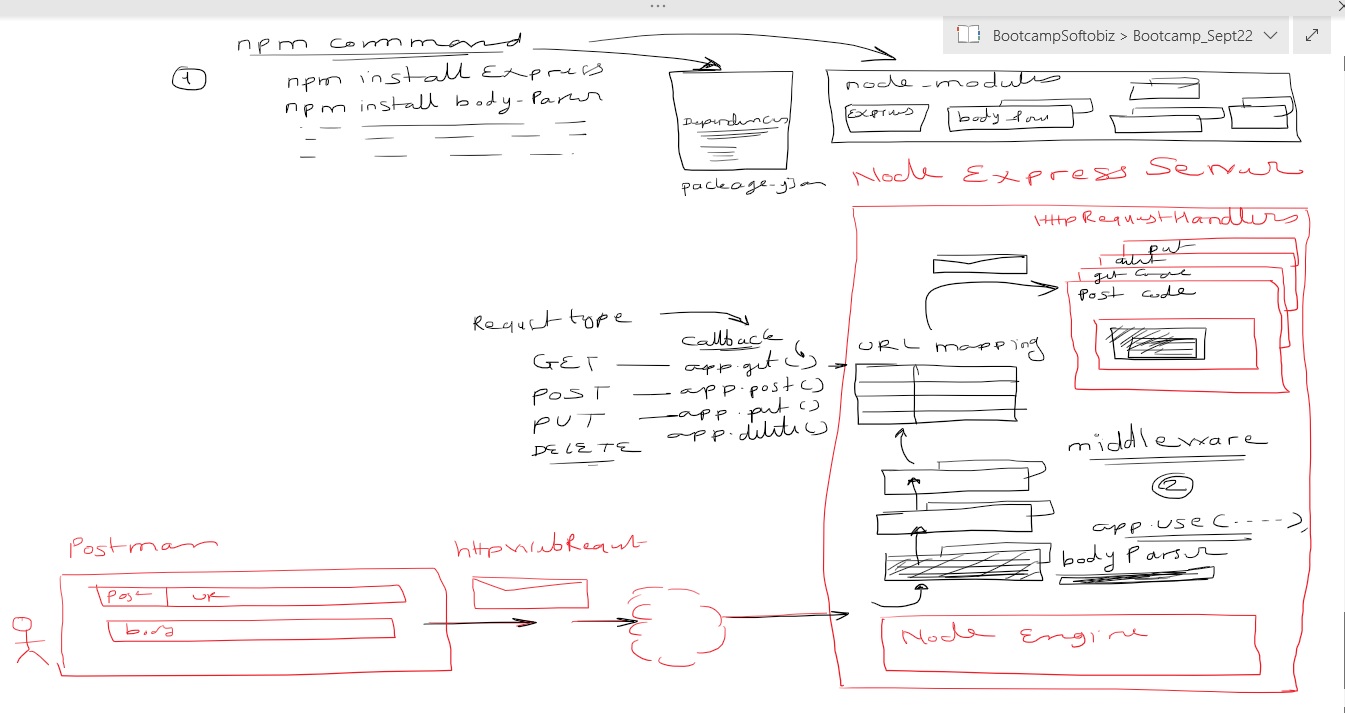 BootcampSoftobiz > Bootcamp_Sept22
npm command
1
npm install Express
npm install body-Parser
Dependencies
package-json
node-modules
Express
body Pars
Node Express Server
HttpRequestHandlers
put
delet
get code
Post code
Request type
callback
GET — app.get()
POST — app.post()
PUT — app.put()
DELETE app.delete()
URL mapping
middleware
2
app.use(----),
body Parser
Postman
httpWebRequest
Post
url
body
Node Engine